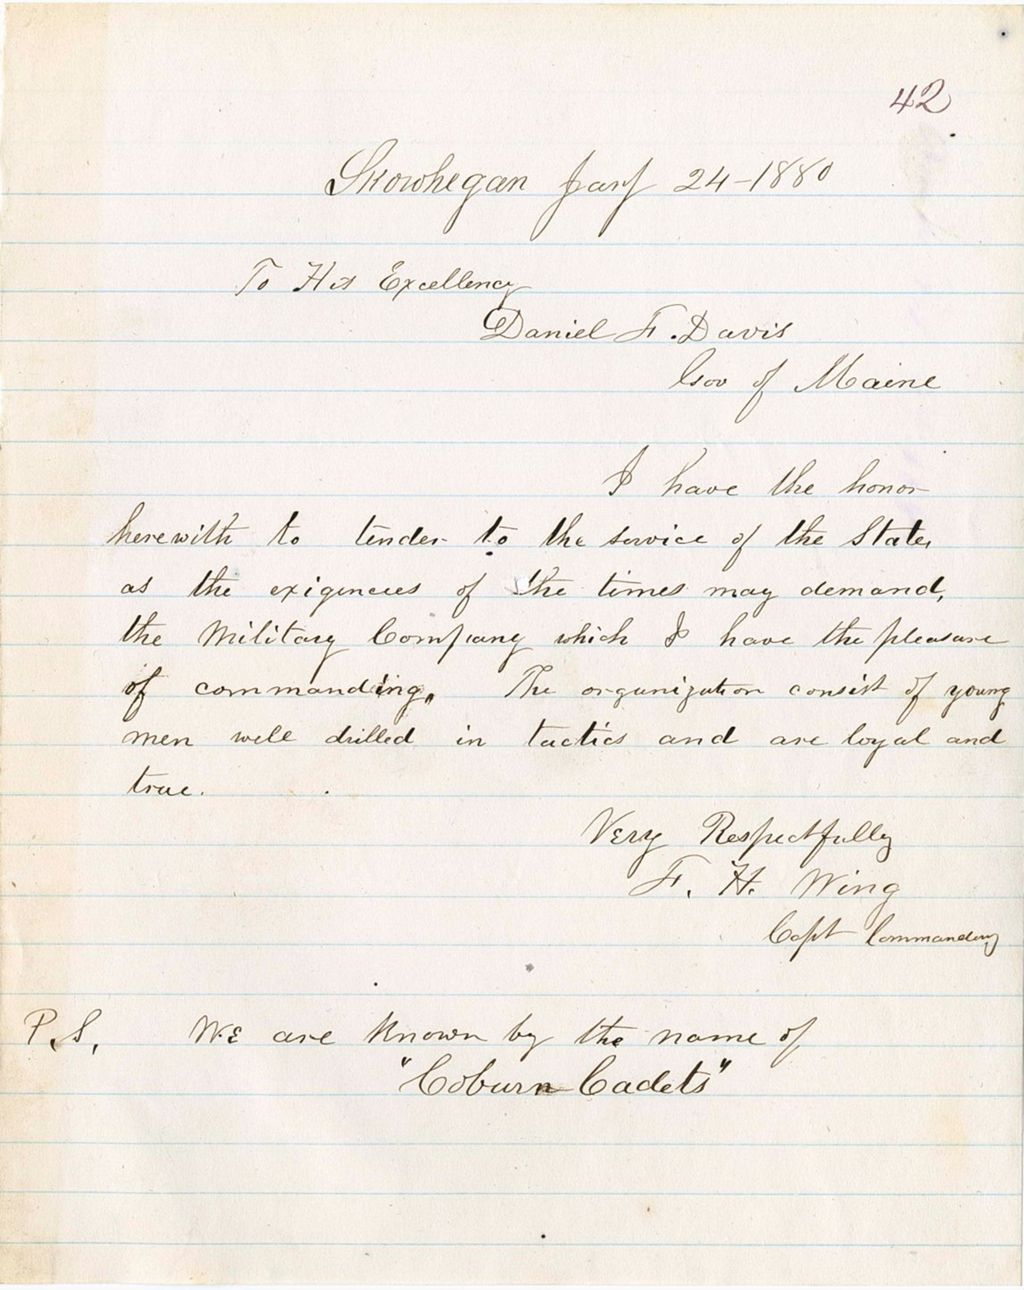 42
Skowhegan Jany 24-1880
To His Excellency
Daniel F. Davis
Gov of Maine
I have the honor
herewith to tender to the service of the State,
as the exigencies of the times may demand,
the Military Company which I have the pleasure
of commanding. The organization consist of young
men well drilled in tactics and are loyal and
true.
Very Respectfully
F. H. Wing
Capt Commanding
P.S. We are Known by the name of
"Coburn Cadets"